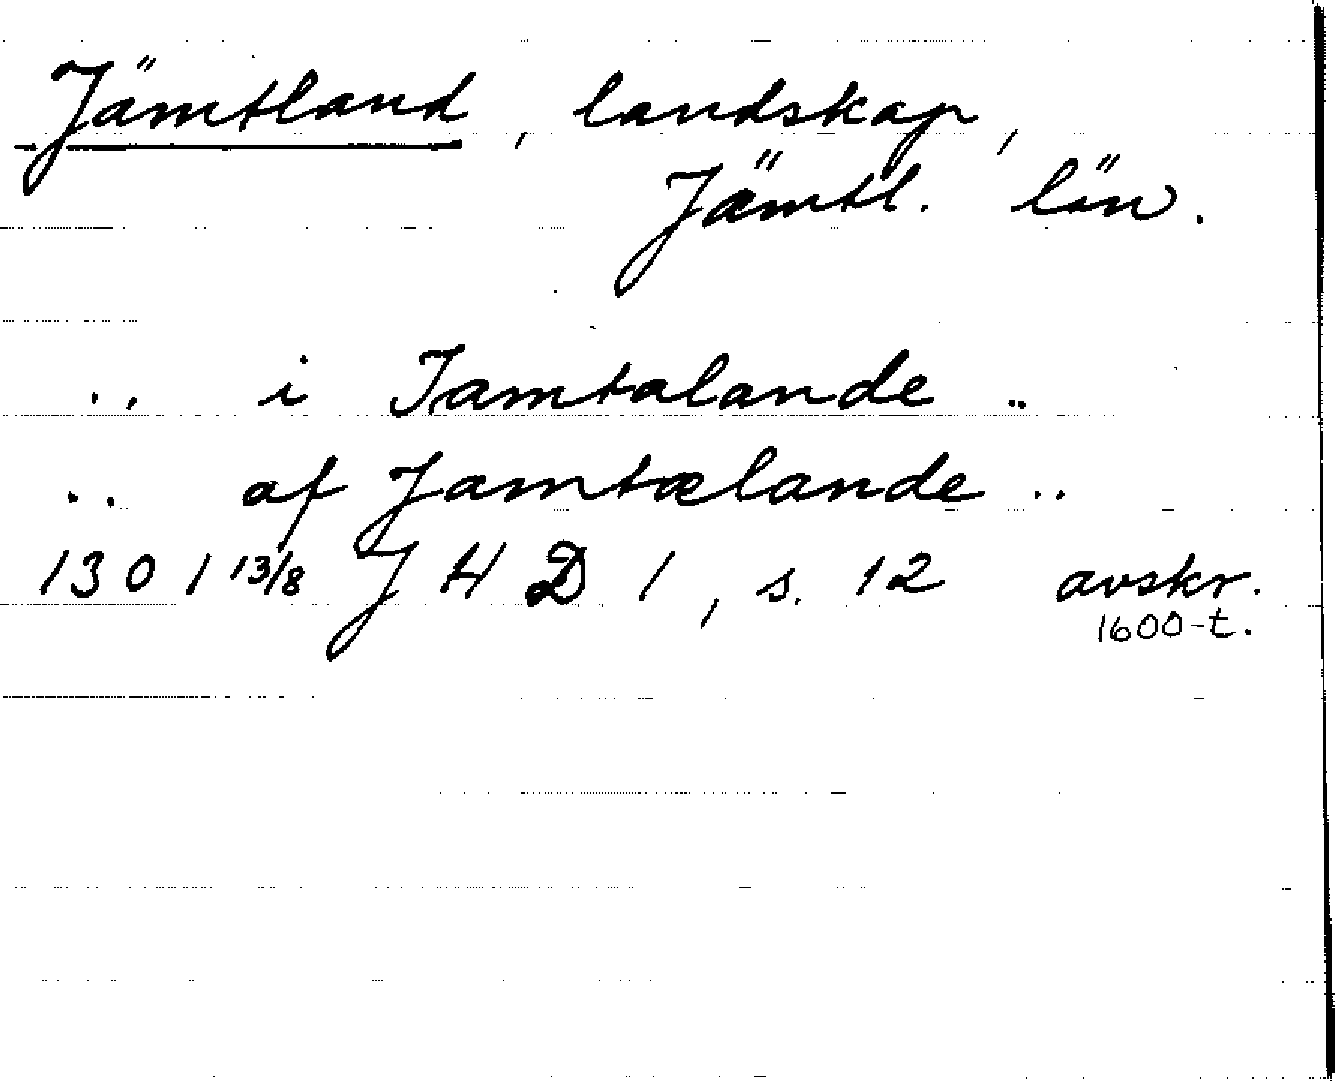 Jämtland, landskap,
Jämtl. län.
.. i Iamtalande ..
.. af Jamtælande ..
1301 13/8 JHD 1, s. 12 avskr.
1600-t.